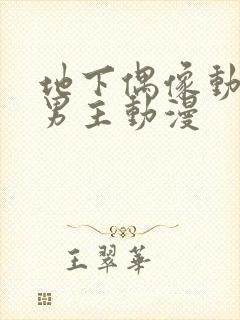 地下偶像動
男主動漫
王翠華